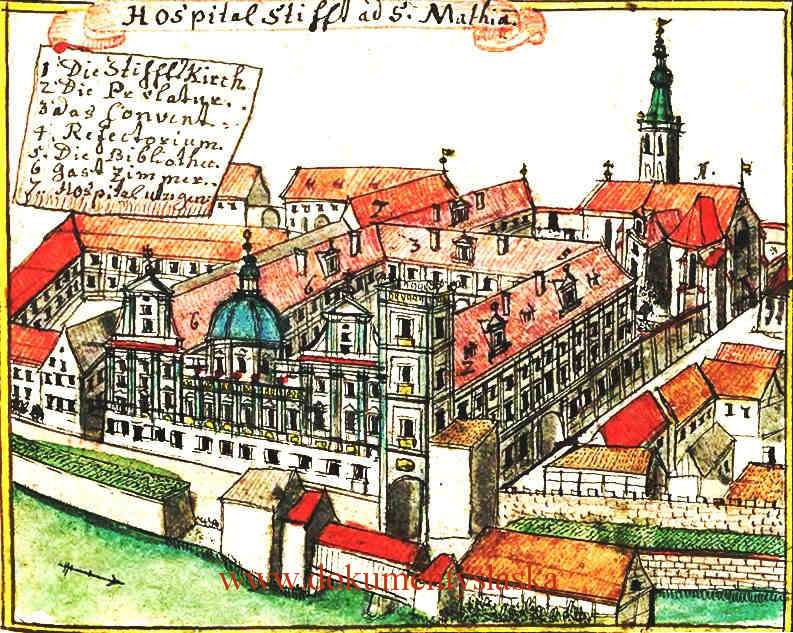 Hospital Stifft ad S. Mathia.
1 Die Stifft Kirch.
2 Die Prelatur.
3 das Convent.
4. Refectorium.
5. Die Bibliothec.
6 Gast Zimmer.
7. Hospital
7
3
6
6
2
1.
www.dokumentyslaska